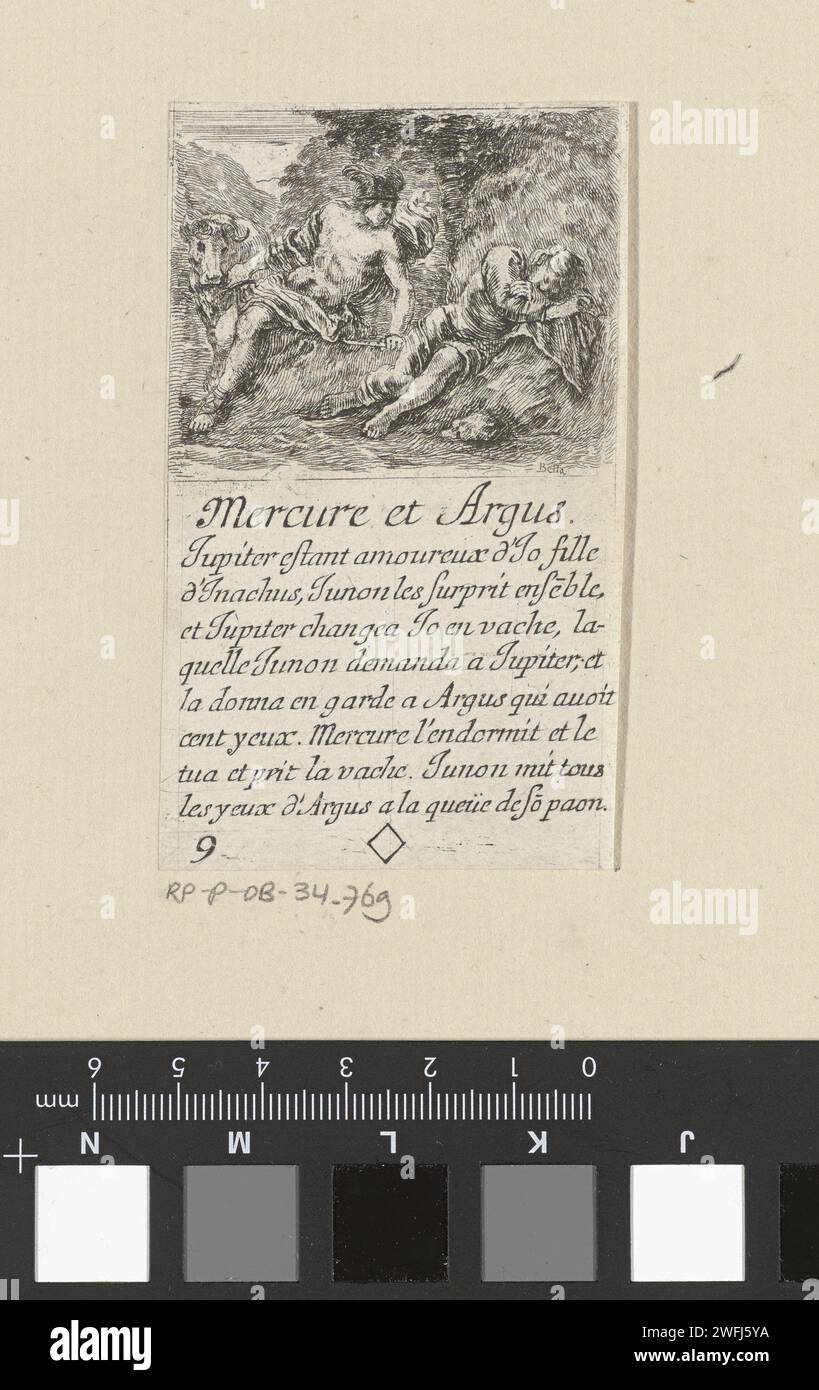 Bella
Mercure et Argus.
Jupiter eſtant amoureux d'Jo fille
d'Jnachus, Junon les ſurprit enſēble,
et Jupiter changea Jo en vache, la-
quelle Junon demanda a Jupiter, et
la donna en garde a Argus qui auoit
cent yeux. Mercure l'endormit et le
tua et prit la vache. Junon mit tous
les yeux d'Argus a la queüe de ſō paon.
9
RP-P-OB-34-76g
0 1 2 3 4 5 6
mm
J K L M N
alamy
alamy
Image ID: 2WFJ5YA
www.alamy.com